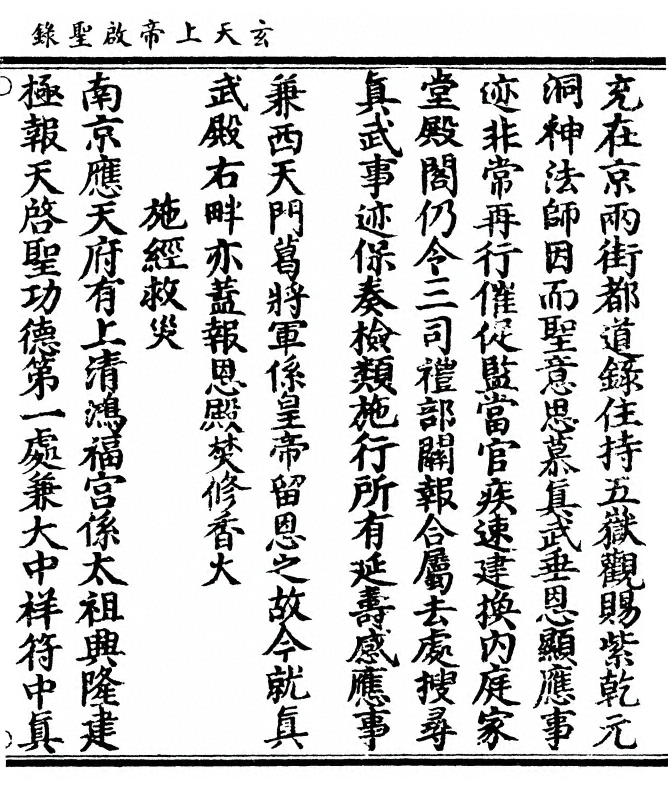 玄天上帝啟聖錄
充在京兩街都道錄住持五嶽觀賜紫乾元
洞神法師因而聖意思慕眞武垂恩顯應事
迹非常再行催促監當官疾速建換內庭家
堂殿閣仍令三司禮部關報合屬去處搜尋
眞武事迹保奏檢類施行所有延壽感應事
兼西天門葛將軍係皇帝留恩之故今就眞
武殿右畔亦蓋報恩殿焚修香火
施經救災
南京應天府有上清鴻福宮係太祖興隆建
極報天啓聖功德第一處兼大中祥符中眞